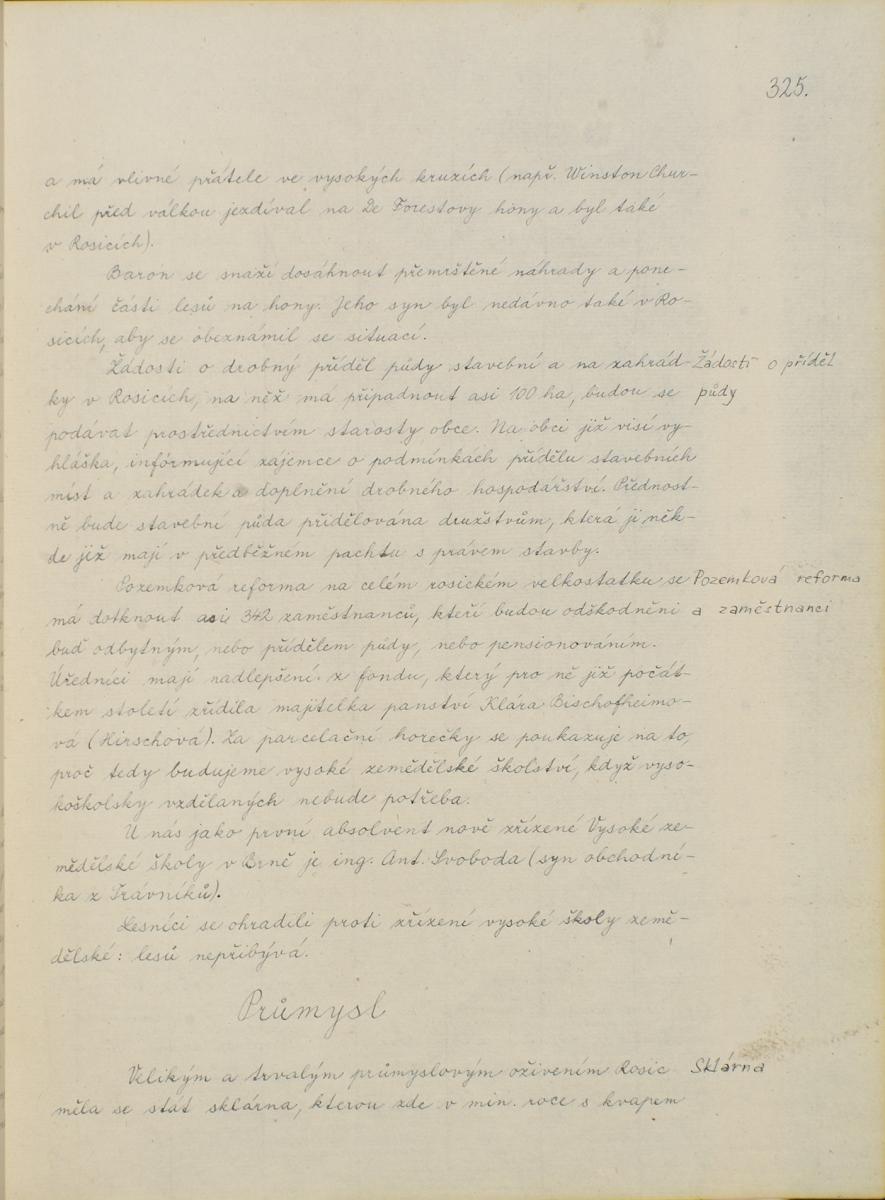 325.
a má vlivné přátele ve vysokých kruzích (např. Winston Chur-
chil před válkou jezdíval na De Forestovy hony a byl také
v Rosicích).
Baron se snaží dosáhnout přemrštěné náhrady a pone-
chání části lesů na hony. Jeho syn byl nedávno také v Ro-
sicích, aby se obeznámil se situací.
Žádosti o drobný příděl půdy stavební a na zahrád-
Žádosti o příděl
ky v Rosicích, na něž má připadnout asi 100 ha, budou se
půdy
podávat prostřednictvím starosty obce. Na obci již visí vy-
hláška, informující zájemce o podmínkách přídělu stavebních
míst a zahrádek a doplnění drobného hospodářství. Přednost-
ně bude stavební půda přidělována družstvům, která ji něk-
de již mají v předběžném pachtu s právem stavby.
Pozemková reforma na celém rosickém velkostatku se
Pozemková reforma
má dotknout asi 342 zaměstnanců, kteří budou odškodněni
a zaměstnanci
buď odbytným, nebo přídělem půdy, nebo pensionováním.
Úředníci mají nadlepšení z fondu, který pro ně již počát-
kem století zřídila majitelka panství Klára Bischofheimo-
vá (Hirschová). Za parcelační horečky se poukazuje na to,
proč tedy budujeme vysoké zemědělské školství, když vyso-
koškolsky vzdělaných nebude potřeba.
U nás jako první absolvent nově zřízené Vysoké ze-
mědělské školy v Brně je ing. Ant. Svoboda (syn obchodní-
ka z Trávníků).
Lesníci se ohradili proti zřízení vysoké školy země-
dělské: lesů nepřibývá.
Průmysl
Velikým a trvalým průmyslovým oživením Rosic
Sklárna
měla se stát sklárna, kterou zde v min. roce s kvapem